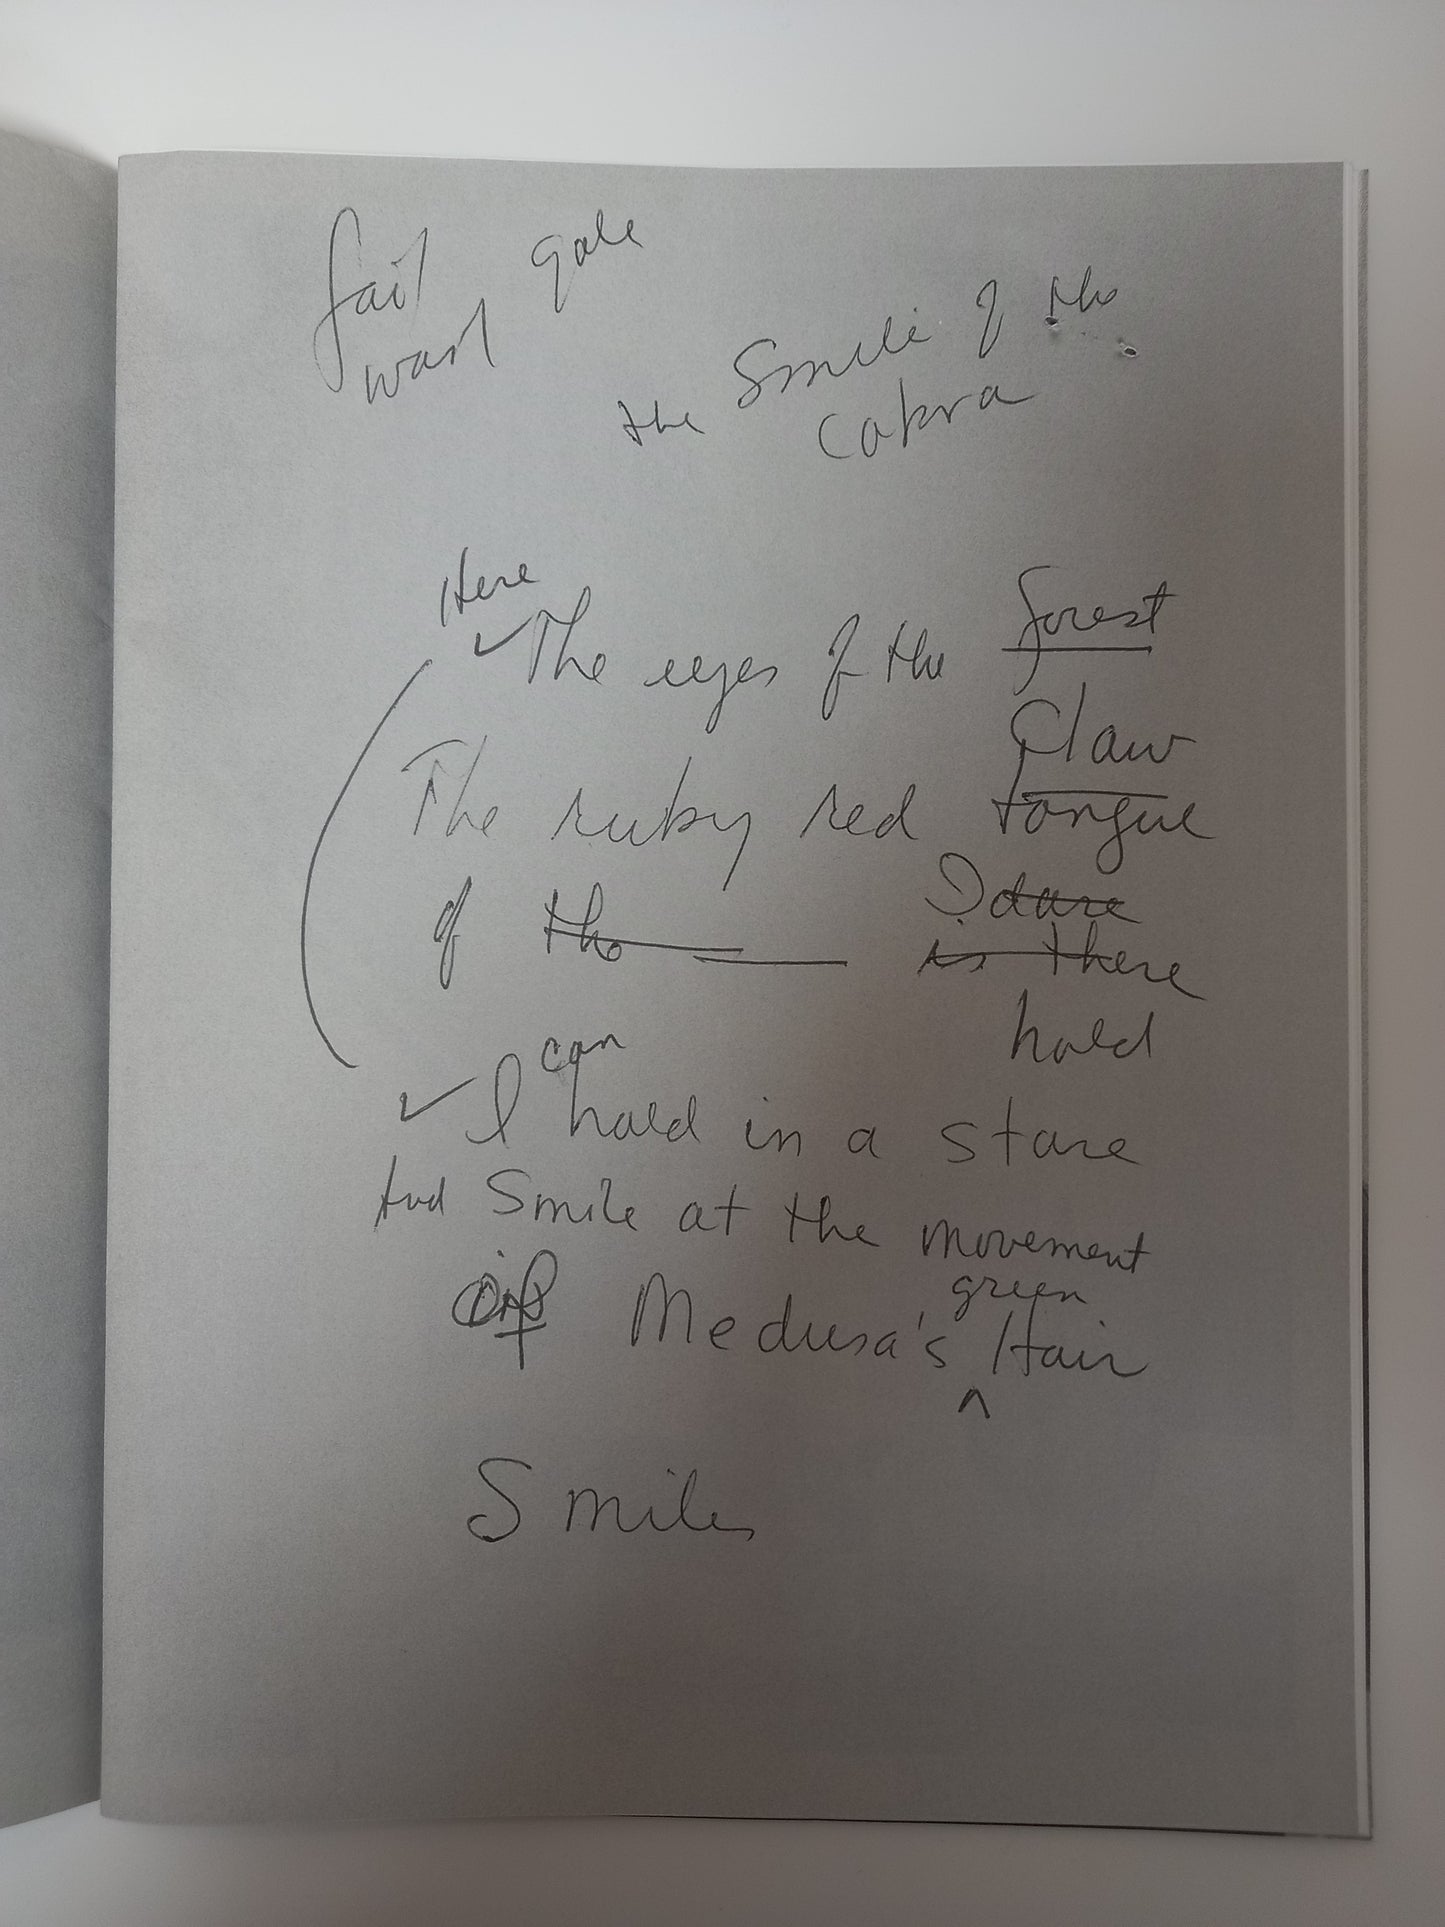 gale
the Smile of the
Cobra
Here
The eyes of the forest
Claw
The ruby red tongue
of the I dare
is there
hold
can
I hold in a stare
And Smile at the movement
of Medusa's green Hair
Smiles